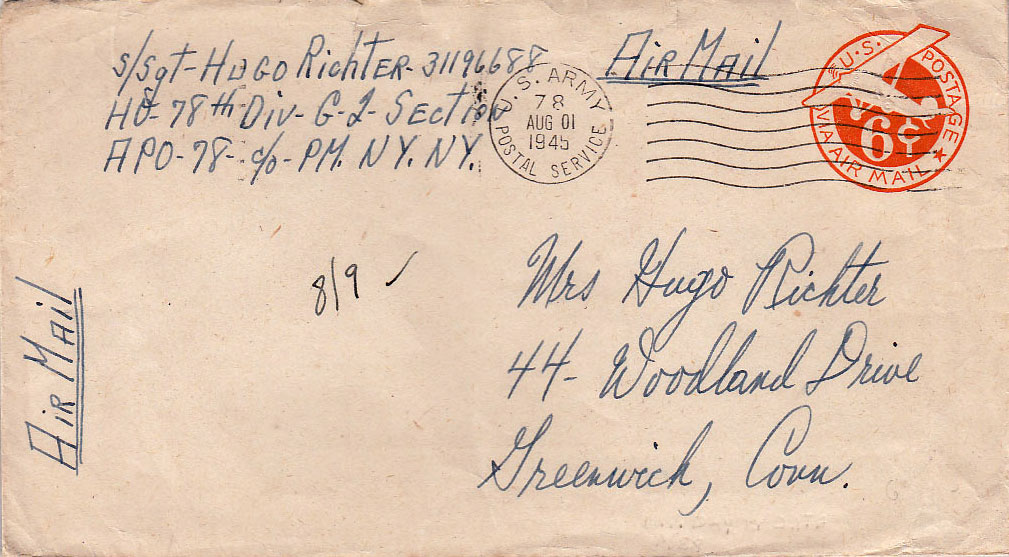 S/Sgt-Hugo Richter-31196688
HQ-78th-Div-G-2-Section
APO-78-c/o-PM. NY. NY.
U.S. ARMY
78
AUG 01
1945
POSTAL SERVICE
Air Mail
U.S. POSTAGE
6¢
VIA AIR MAIL
8/9 ✓
Mrs Hugo Richter
44-Woodland Drive
Greenwich, Conn.
Air Mail